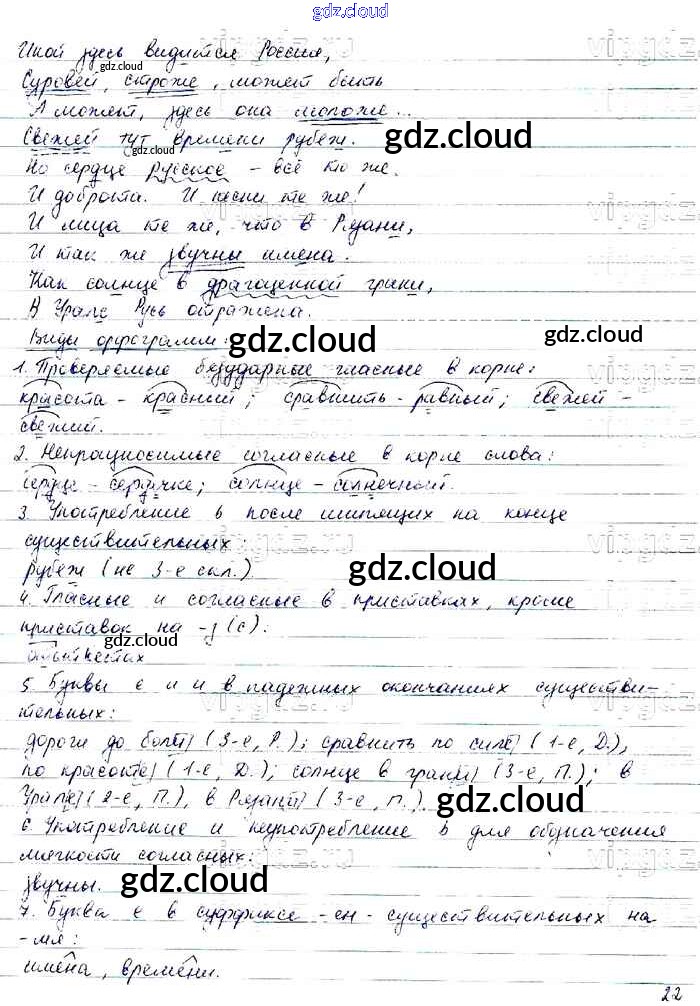 gdz.cloud
Иной здесь видится Россия,
gdz.cloud
Суровей, строже, может быть
А может, здесь она моложе...
Свежей тут времени рубеж.
gdz.cloud
gdz.cloud
Но сердце русское – всё то же.
И доброта. И песни те же!
И лица те же, что в Рязани,
И так же звучны имена.
Как солнце в драгоценной грани,
В Урале Русь отражена.
Виды орфограмм:
gdz.cloud
gdz.cloud
1. Проверяемые безударные гласные в корне:
красота – красный; сравнить – равный; свежей –
свежий.
2. Непроизносимые согласные в корне слова:
сердце – сердечко; солнце – солнечный.
3. Употребление ь после шипящих на конце
существительных:
рубеж (не 3-е скл.).
gdz.cloud
4. Гласные и согласные в приставках, кроме
приставок на -з (с):
gdz.cloud
5. Буквы е и и в падежных окончаниях существи-
тельных:
дороги до боли (3-е, Р.); сравнить по силе (1-е, Д.),
по красоте (1-е, Д.); солнце в грани (3-е, П.); в
Урале (2-е, П.), в Рязани (3-е, П.).
gdz.cloud
6. Употребление и неупотребление ь для обозначения
мягкости согласных:
звучны.
gdz.cloud
7. Буква е в суффиксе -ен- существительных на
-мя:
имена, времени.
22